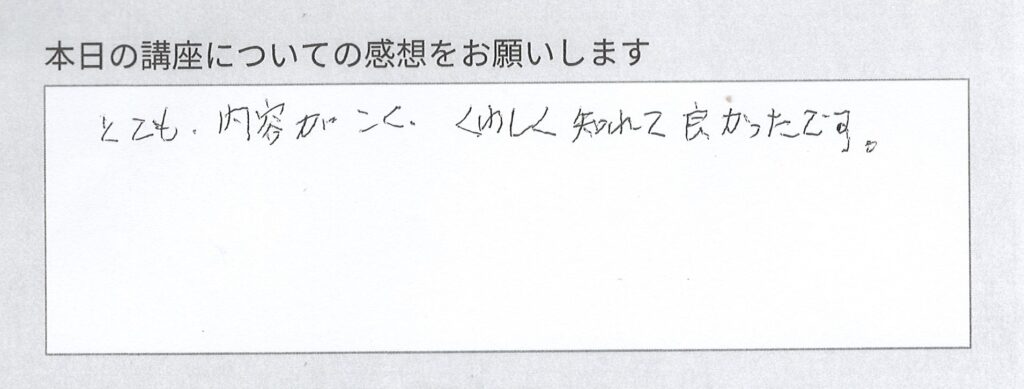 本日の講座についての感想をお願いします
とても、内容がこく、くわしく知れて良かったです。